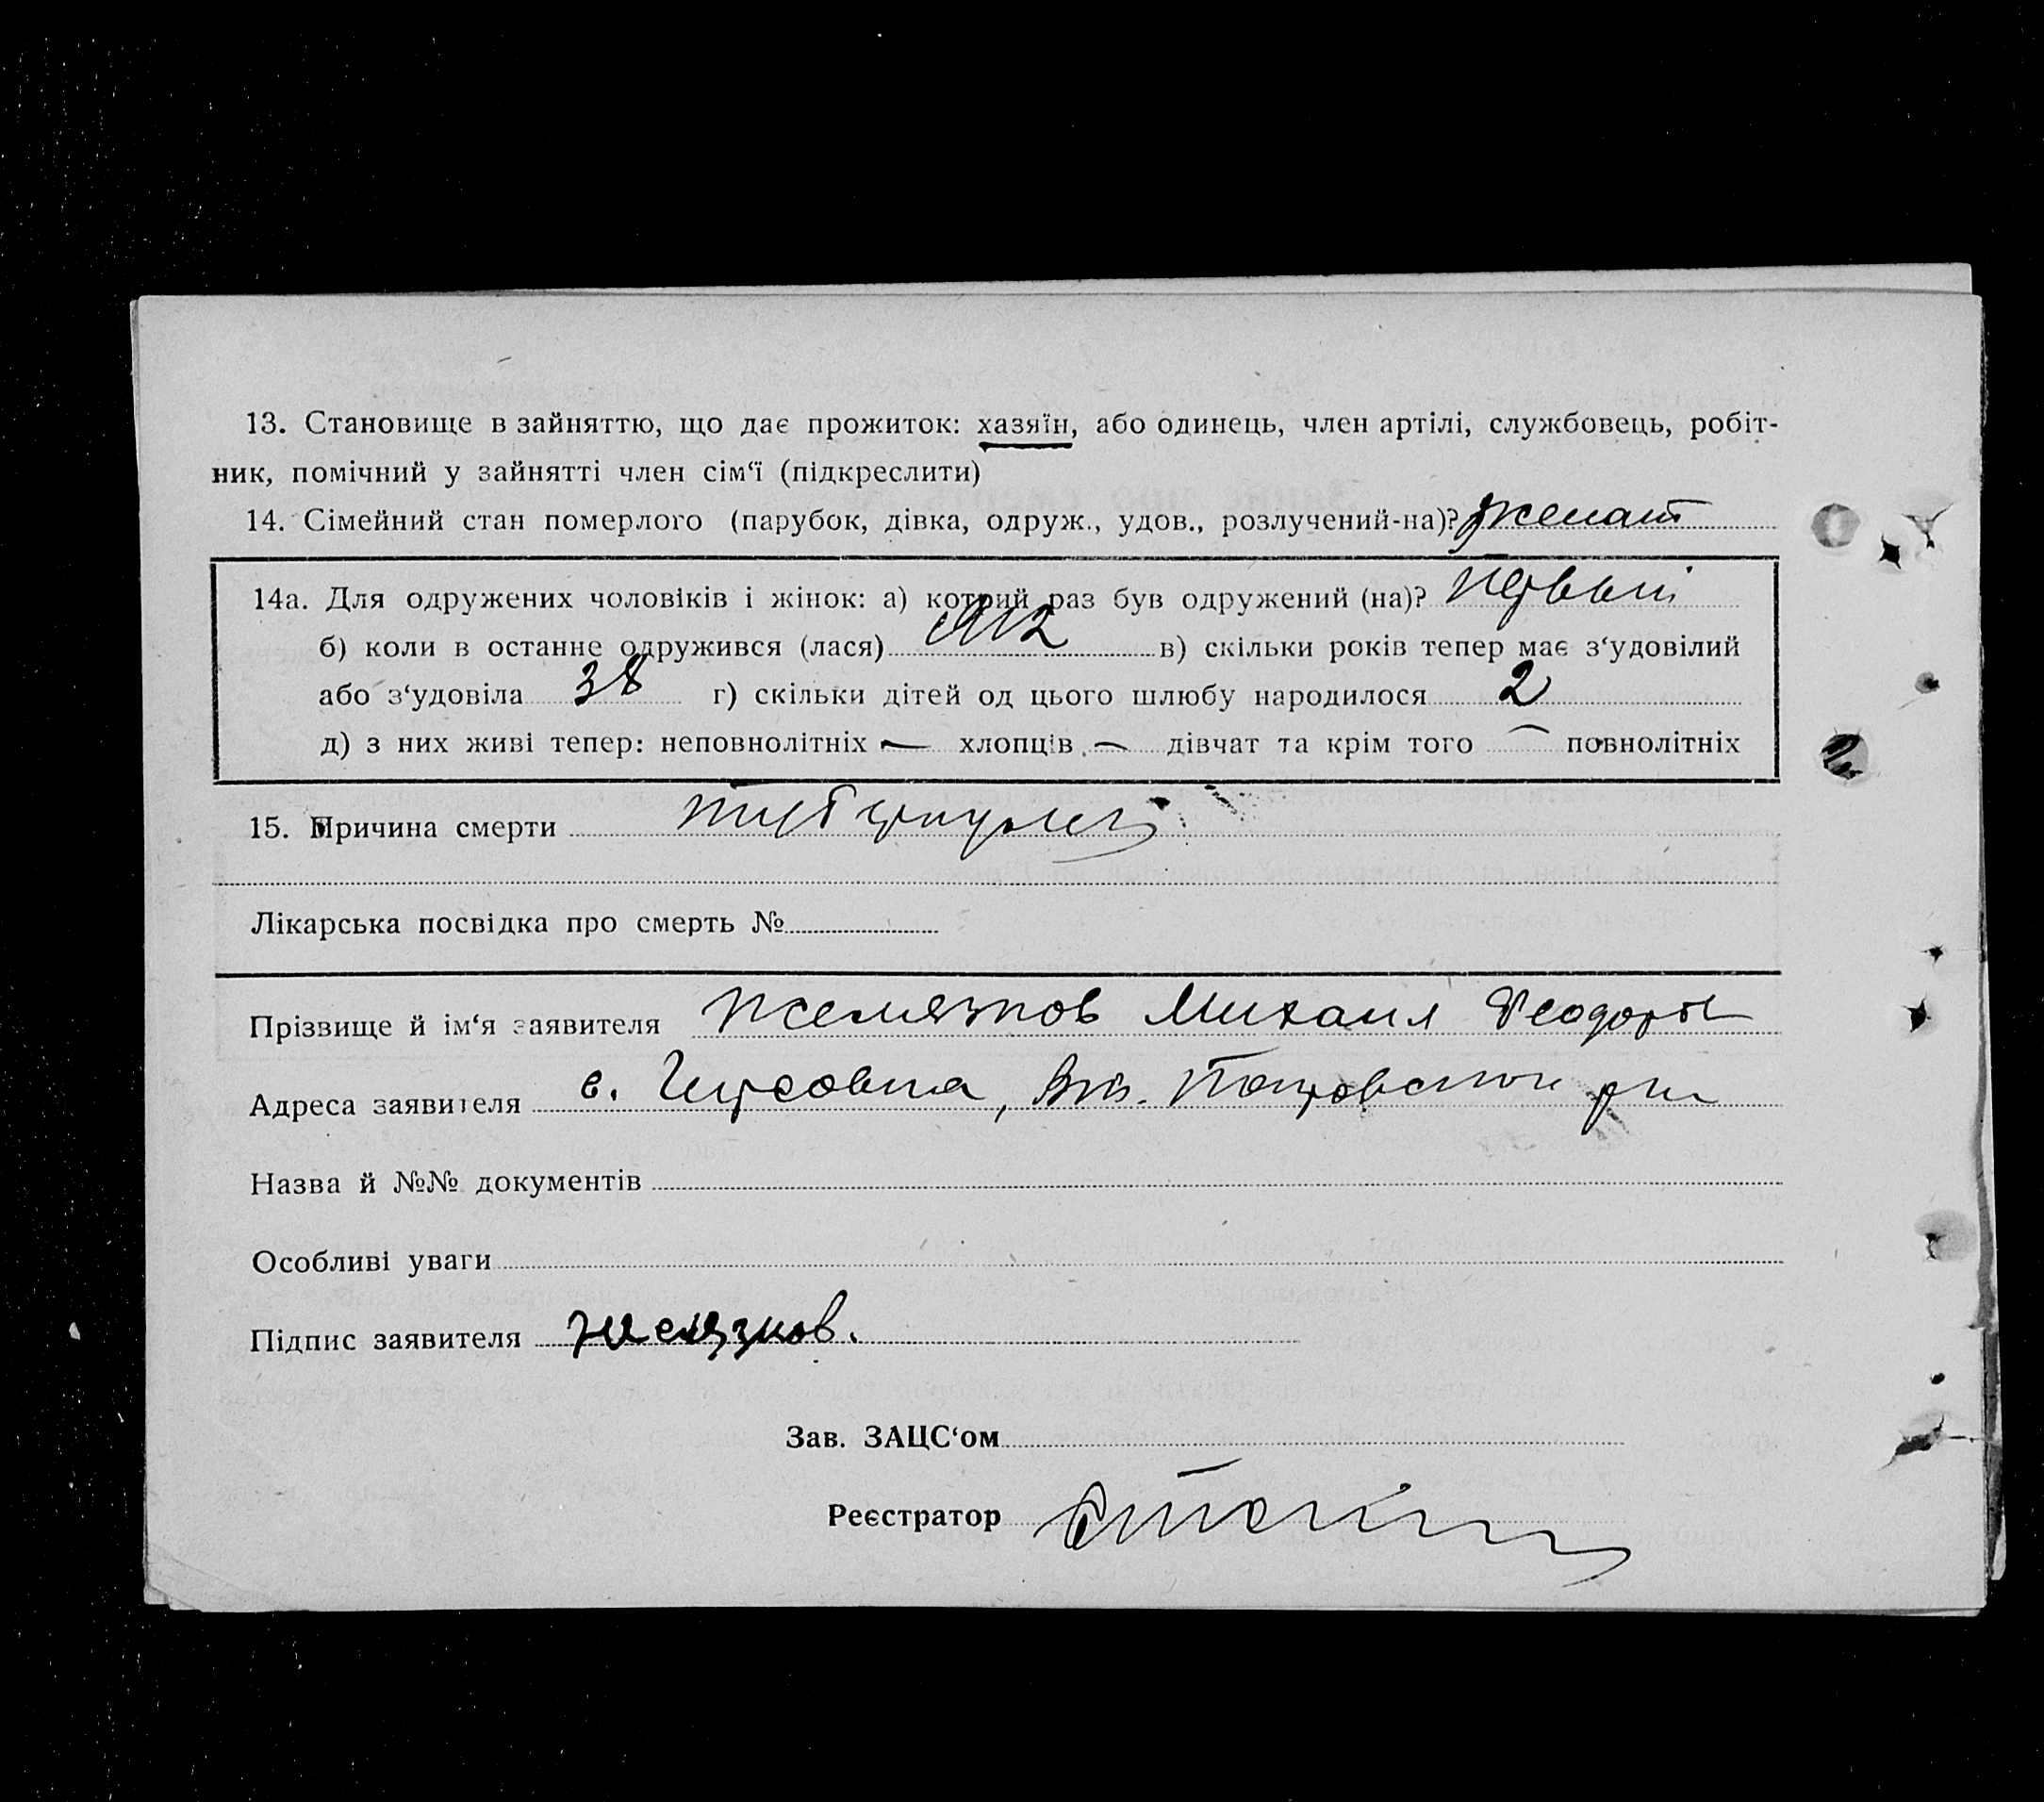 13. Становище в зайняттю, що дає прожиток: хазяїн, або одинець, член артілі, службовець, робіт-
ник, помічний у зайнятті член сім‘ї (підкреслити)
14. Сімейний стан померлого (парубок, дівка, одруж., удов., розлучений-на)? женат
14а. Для одружених чоловіків і жінок: а) котрий раз був одружений (на)? первый
б) коли в останнє одружився (лася) 1912 в) скільки років тепер має з‘удовілий
або з‘удовіла 38 г) скільки дітей од цього шлюбу народилося 2
д) з них живі тепер: неповнолітніх — хлопців — дівчат та крім того — повнолітніх
15. Причина смерти туберкулез
Лікарська посвідка про смерть №
Прізвище й ім‘я заявителя Желязков Михаил Феодоров
Адреса заявителя с.
Назва й №№ документів
Особливі уваги
Підпис заявителя Желязков.
Зав. ЗАЦС‘ом
Реєстратор